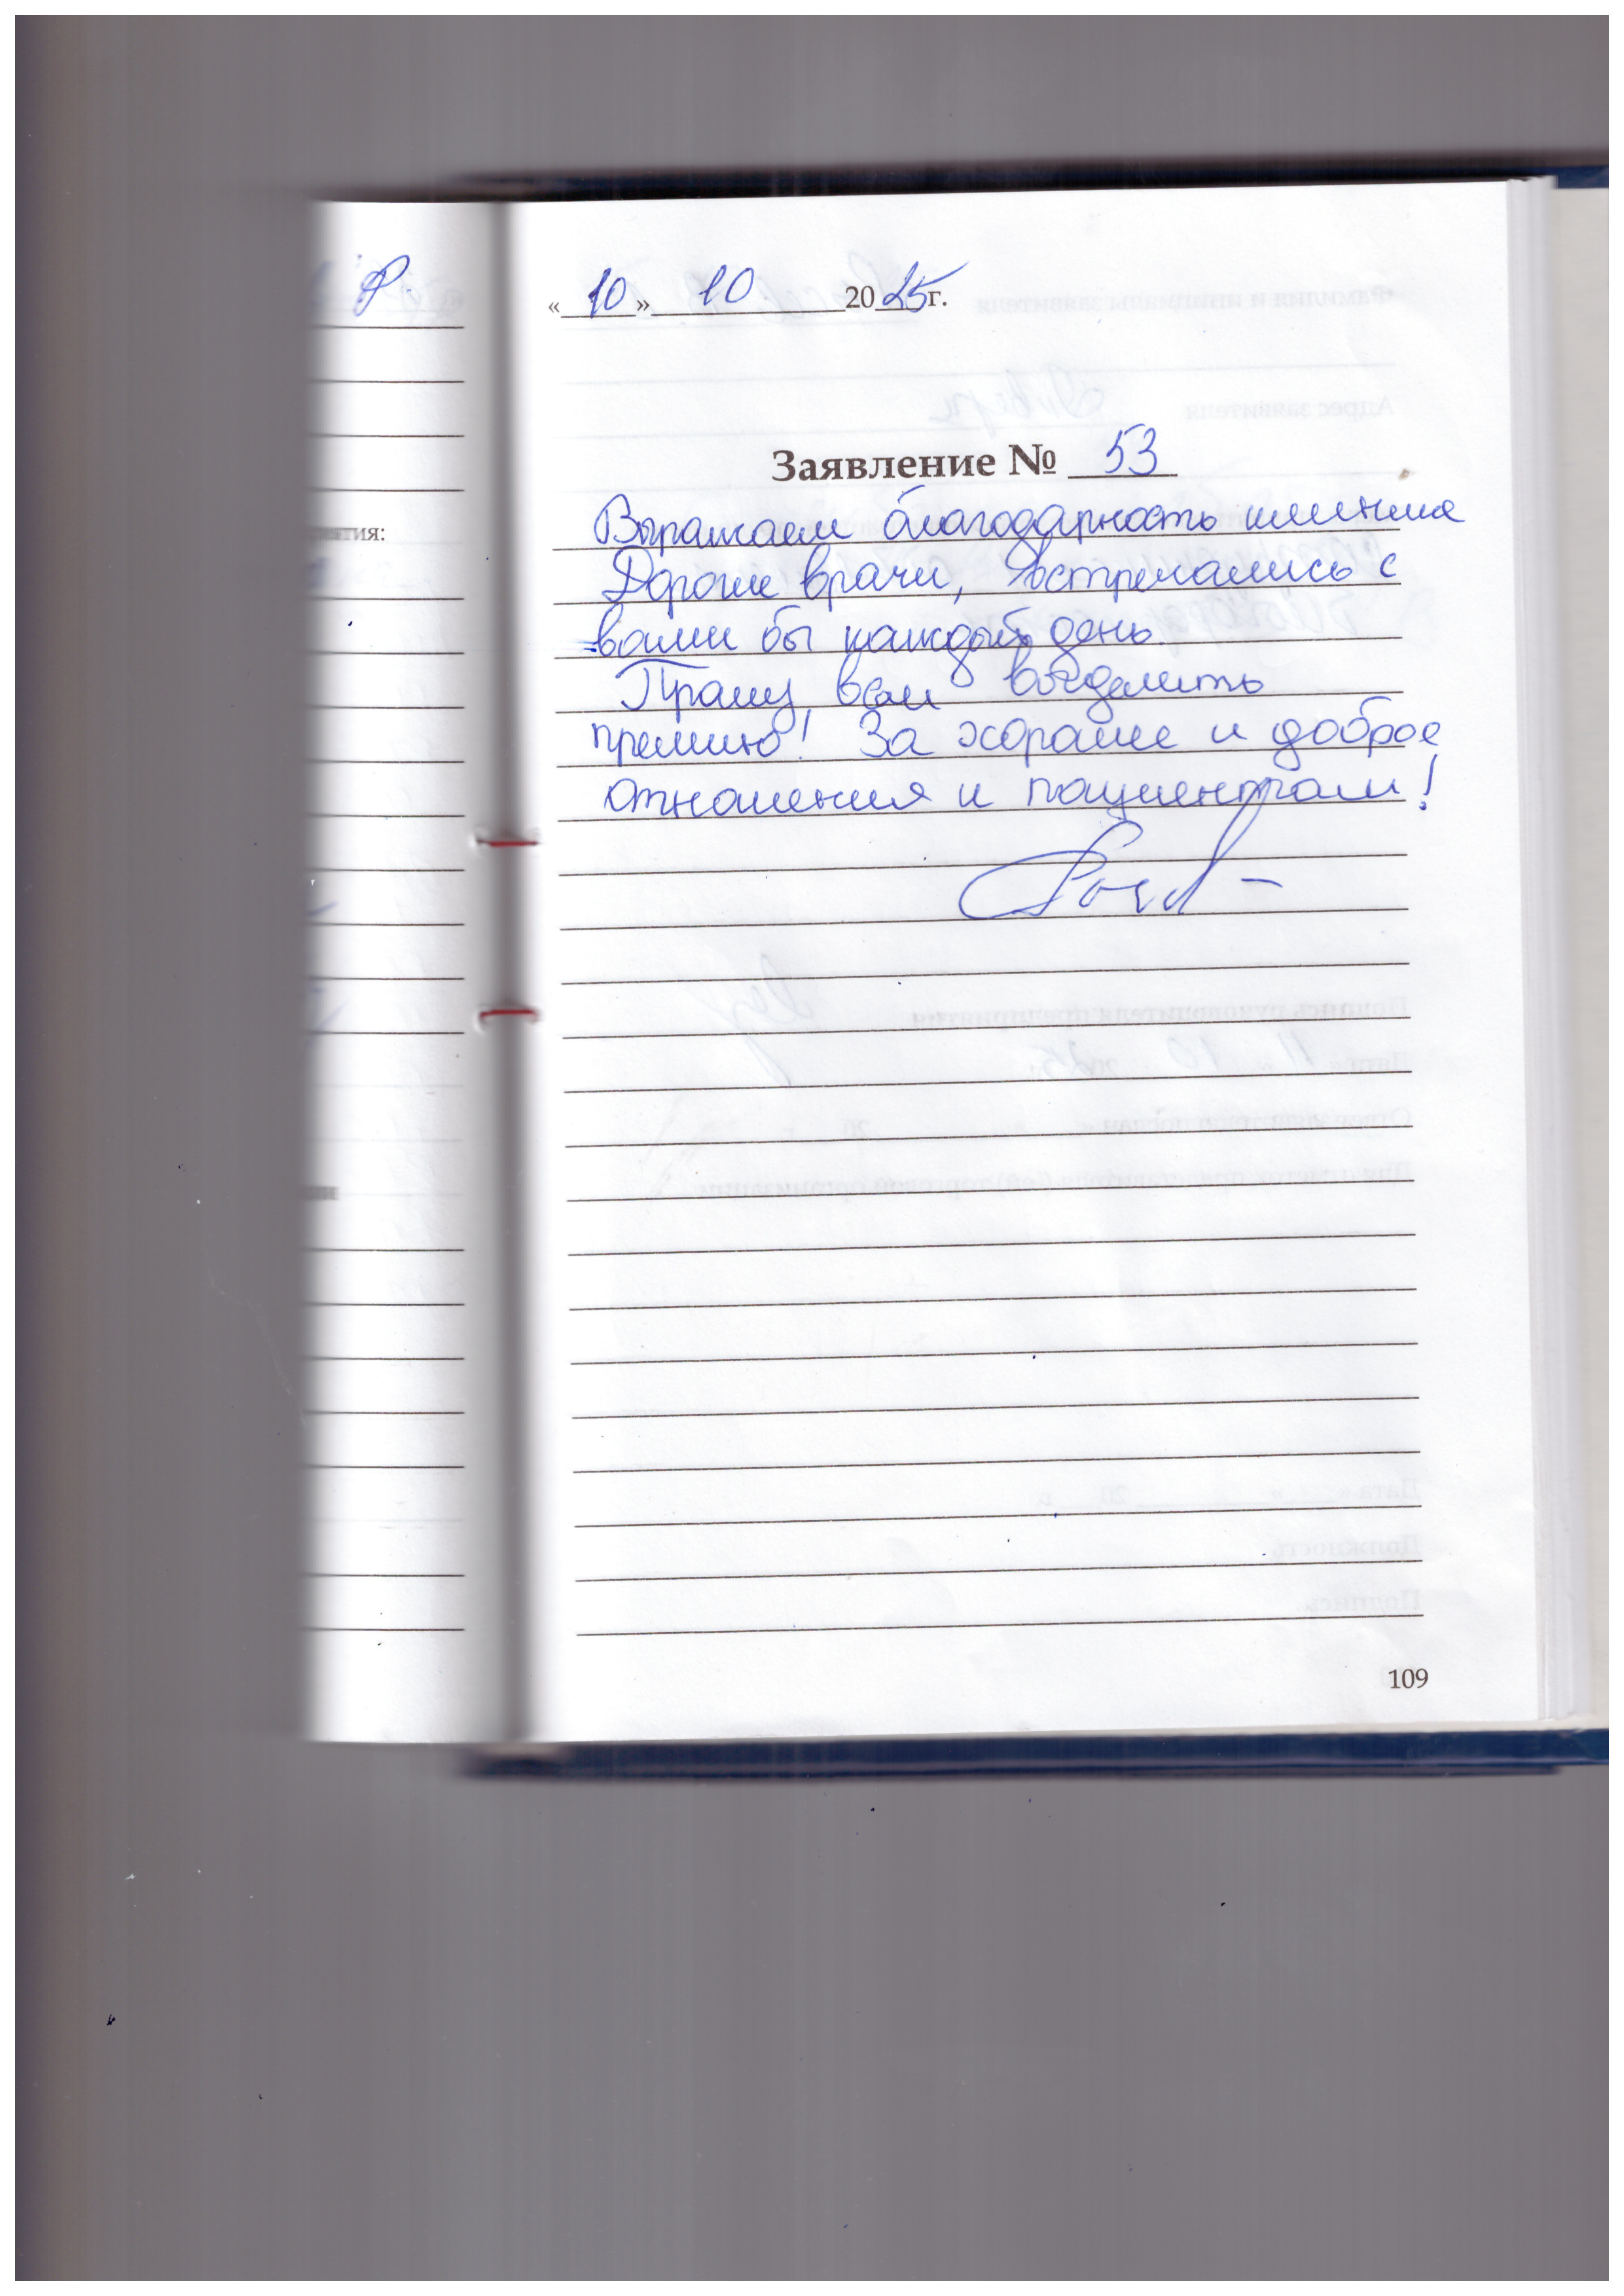 «10» 10 2025г.
Заявление № 53
Выражаем благодарность клинике
Дорогие врачи, встречались с
вами бы каждый день
Прашу вам выделить
премию! За хорашие и доброе
отнашения и пациентам!
тия:
109